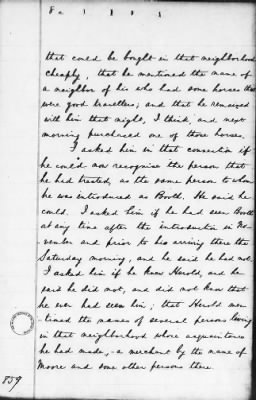 that could be bought in that neighborhood
cheaply, that he mentioned the name of
a neighbor of his who had some horses that
were good travellers; and that he remained
with him that night, I think, and next
morning purchased one of those horses.
I asked him in that connection if
he could now recognise the person that
he had treated, as the same person to whom
he was introduced as Booth. He said he
could. I asked him if he had seen Booth
at any time after the introduction in No-
vember and prior to his arriving there the
Saturday morning, and he said he had not.
I asked him if he knew Herold, and he
said he did not, and did not know that
he ever had seen him; that Herold men-
tioned the names of several persons living
in that neighborhood whose acquaintance
he had made, - a merchant by the name of
Moore and some other persons there.
859